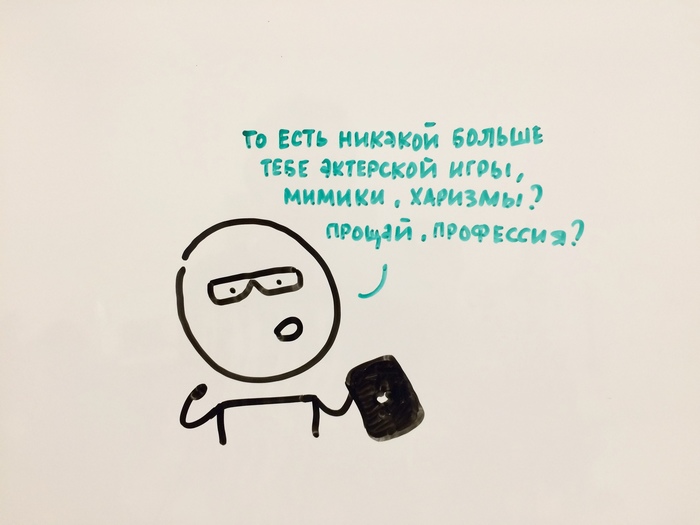 ТО ЕСТЬ НИКАКОЙ БОЛЬШЕ
ТЕБЕ АКТЕРСКОЙ ИГРЫ,
МИМИКИ, ХАРИЗМЫ?
ПРОЩАЙ, ПРОФЕССИЯ?